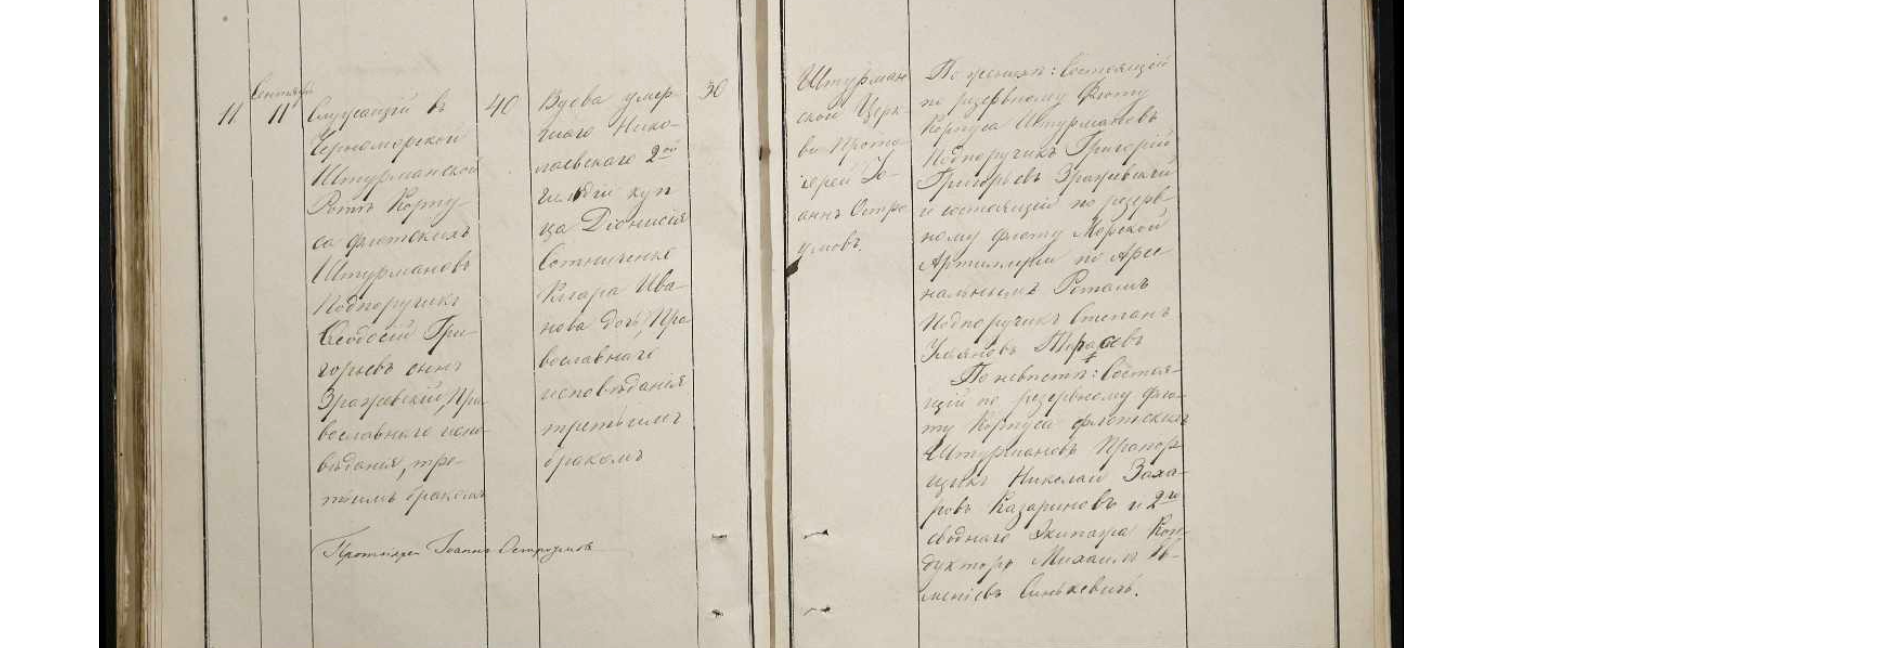 11
Сентября
11
Служащій въ
Черноморской
Штурманской
Ротѣ Корпу-
са флотскихъ
Штурмановъ
Подпоручикъ
Ѳеодосій Гри-
горьевъ сынъ
Зражевскій, Пра-
вославнаго испо-
вѣданія, тре-
тьимъ бракомъ
40
Вдова умер-
шаго Нико-
лаевскаго 2ой
гильдіи куп-
ца Діонисія
Сотниченко
Клара Ива-
нова дочь, Пра-
вославнаго
исповѣданія
третьимъ
бракомъ
30
Протоіерей Іоаннъ Остроумовъ
Штурман
ской Церк-
ви Прото-
іерей Іо-
аннъ Остро
умовъ.
По женихѣ: Состоящій
по резервному флоту
Корпуса Штурмановъ
Подпоручикъ Григорій
Григорьевъ Зражевскій
и состоящій по резерв-
ному флоту Морской
Артиллеріи по Арсе
нальнымъ Ротамъ
Подпоручикъ Степанъ
Ульяновъ
По невѣстѣ: Состоя-
щій по резервному фло-
ту Корпуса флотскихъ
Штурмановъ Прапор-
щикъ Николай Заха-
ровъ Казариновъ и 2го
своднаго Экипажа Кон-
дукторъ Михаилъ
Синькевичъ.